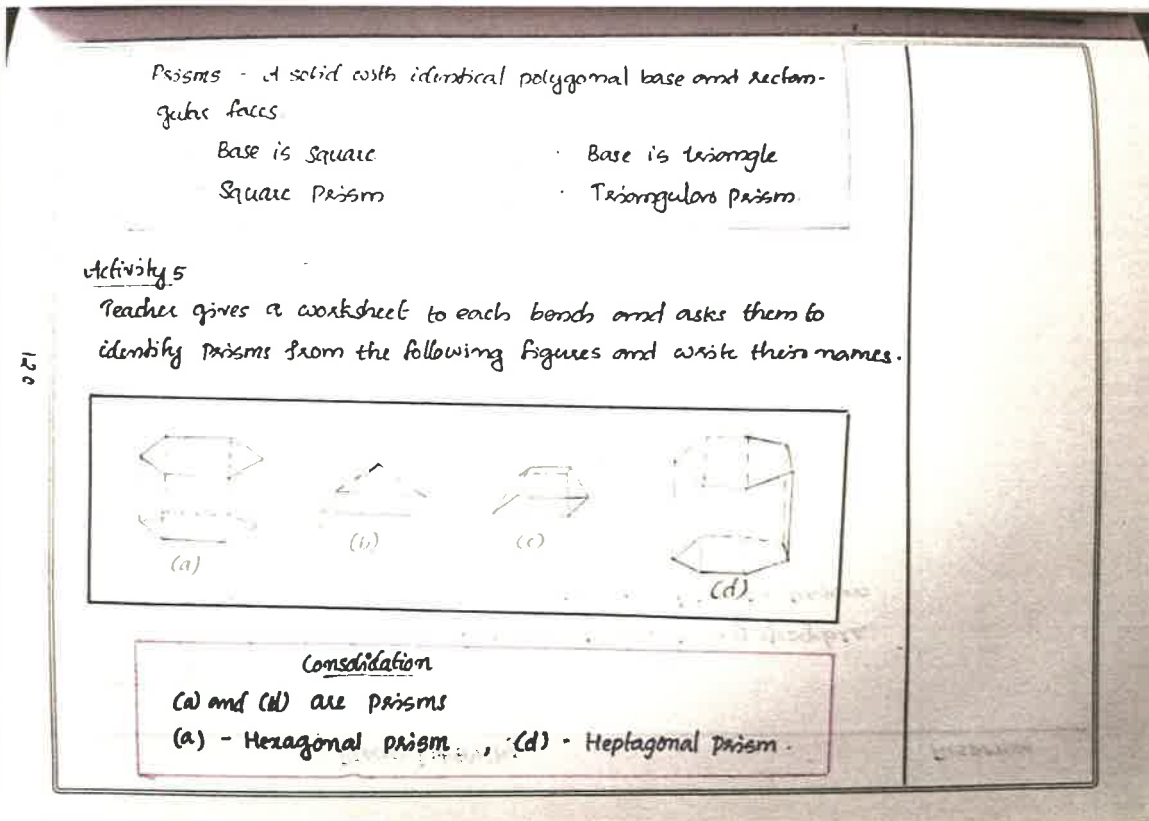 Prisms - A solid with identical polygonal base and rectan-
gular faces
Base is square · Base is triangle
Square Prism · Triangular prism.
Activity 5
Teacher gives a worksheet to each bench and asks them to
identify prisms from the following figures and write their names.
120
(a) (b) (c) (d)
Consolidation
(a) and (d) are prisms
(a) - Hexagonal prism , (d) - Heptagonal prism .